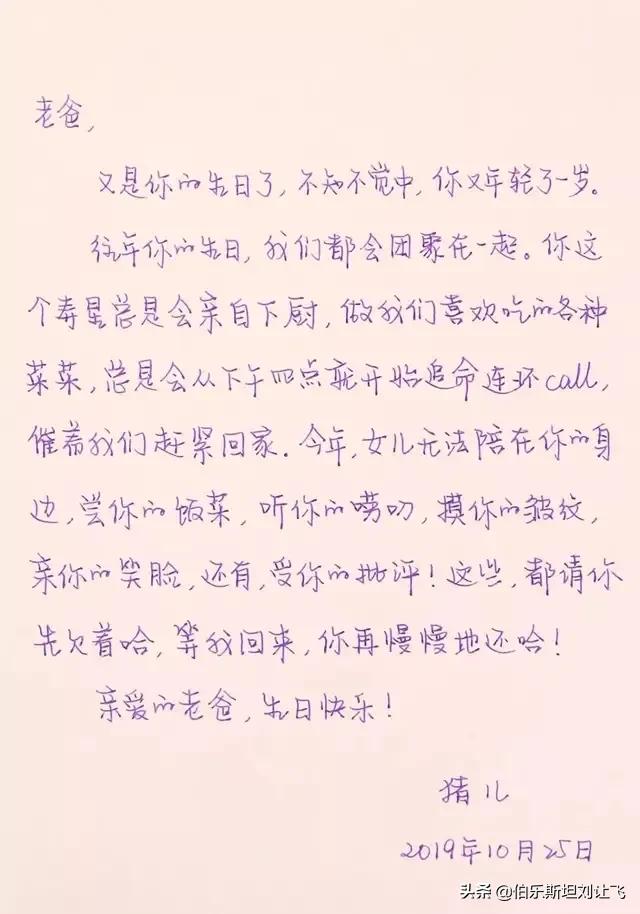 老爸,
又是你的生日了,不知不觉中,你又年轻了一岁。
往年你的生日,我们都会团聚在一起。你这
个寿星总是会亲自下厨,做我们喜欢吃的各种
菜菜,总是会从下午四点就开始追命连环call,
催着我们赶紧回家.今年,女儿无法陪在你的身
边,尝你的饭菜,听你的唠叨,摸你的皱纹,
亲你的笑脸,还有,受你的批评!这些,都请你
先欠着哈,等我回来,你再慢慢地还哈!
亲爱的老爸,生日快乐!
猪儿
2019年10月25日
头条 @伯乐斯坦刘让飞